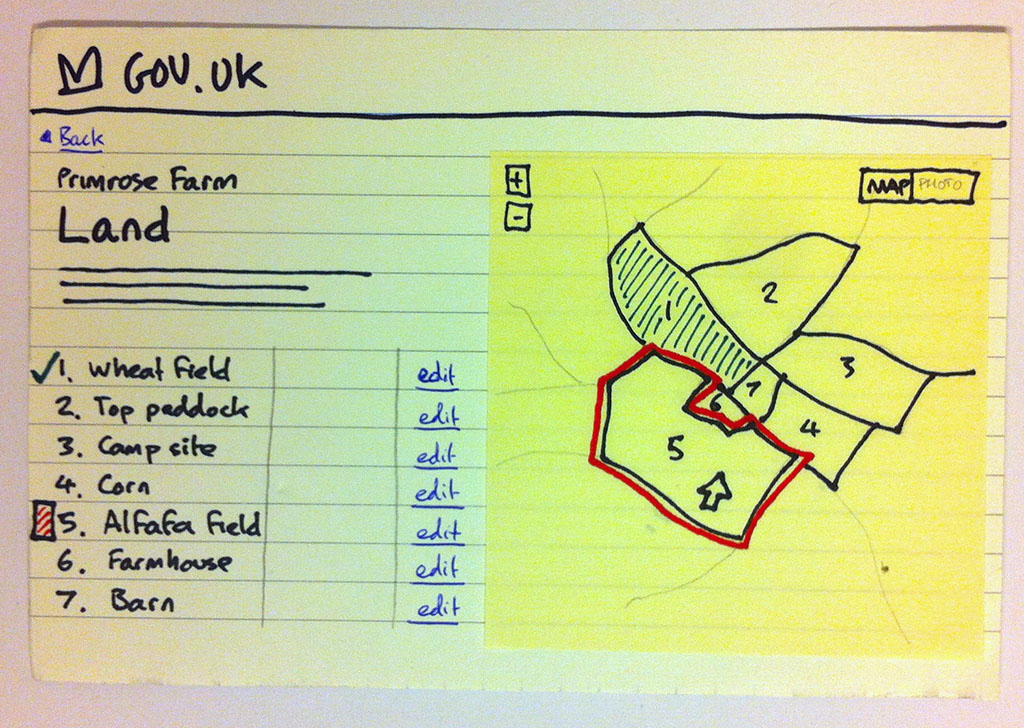 GOV.UK
Back
Primrose Farm
Land
1. Wheat Field edit
2. Top paddock edit
3. Camp site edit
4. Corn edit
5. Alfafa Field edit
6. Farmhouse edit
7. Barn edit
+
-
MAP PHOTO
1
2
3
4
5
6
7